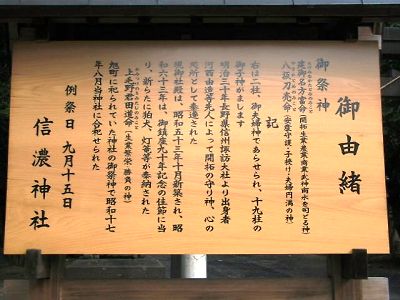 御由緒
御祭神
建御名方富命(開拓生産業商業武神雨水を司どる神)
八坂刀売命(安産守護・子授け・夫婦円満の神)
記
右は二社、御夫婦神であらせられ、十九柱の
御子神がまします
明治三十年長野県信州諏訪大社より出身者
河西由造等先人によって開拓の守り神、心の
恋所として奉遷された
現御社殿は、昭和五十三年十月新築され、昭
和六十三年は、御鎮座九十年記念の佳節に当
り、新らたに狛犬、灯篭等が奉納された
上毛野君田道命(生業繁栄・勝負の神)
旭町に祀られていた神社の御祭神で昭和十七
年八月当神社に合祀せられた
例祭日 九月十五日
信濃神社